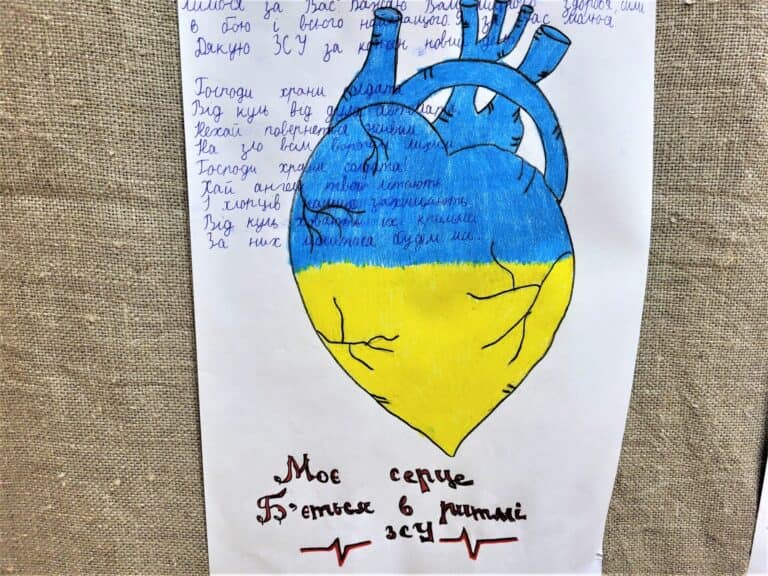 за Вас бажаю Вам здоров'я, сили
в бою і всього найкращого. За Вас
Дякую ЗСУ за кожен новий день
Господи храни солдата
Від куль від автомата
Нехай повернеться живим
На зло всім ворогам
Господи храни солдата!
Хай ангели твої літають
І хлопців наших захищають
Від куль ховають їх крильми
За них молитися будем ми...
Моє серце
Б'ється в ритмі
ЗСУ